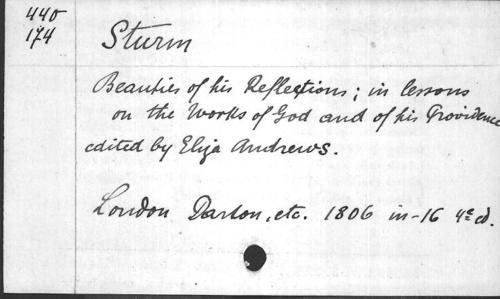 440
174
Sturm
Beauties of his Reflections; in lessons
on the Works of God and of his Providence
edited by Eliza Andrews.
London Darton, etc. 1806 in-16 4e ed.